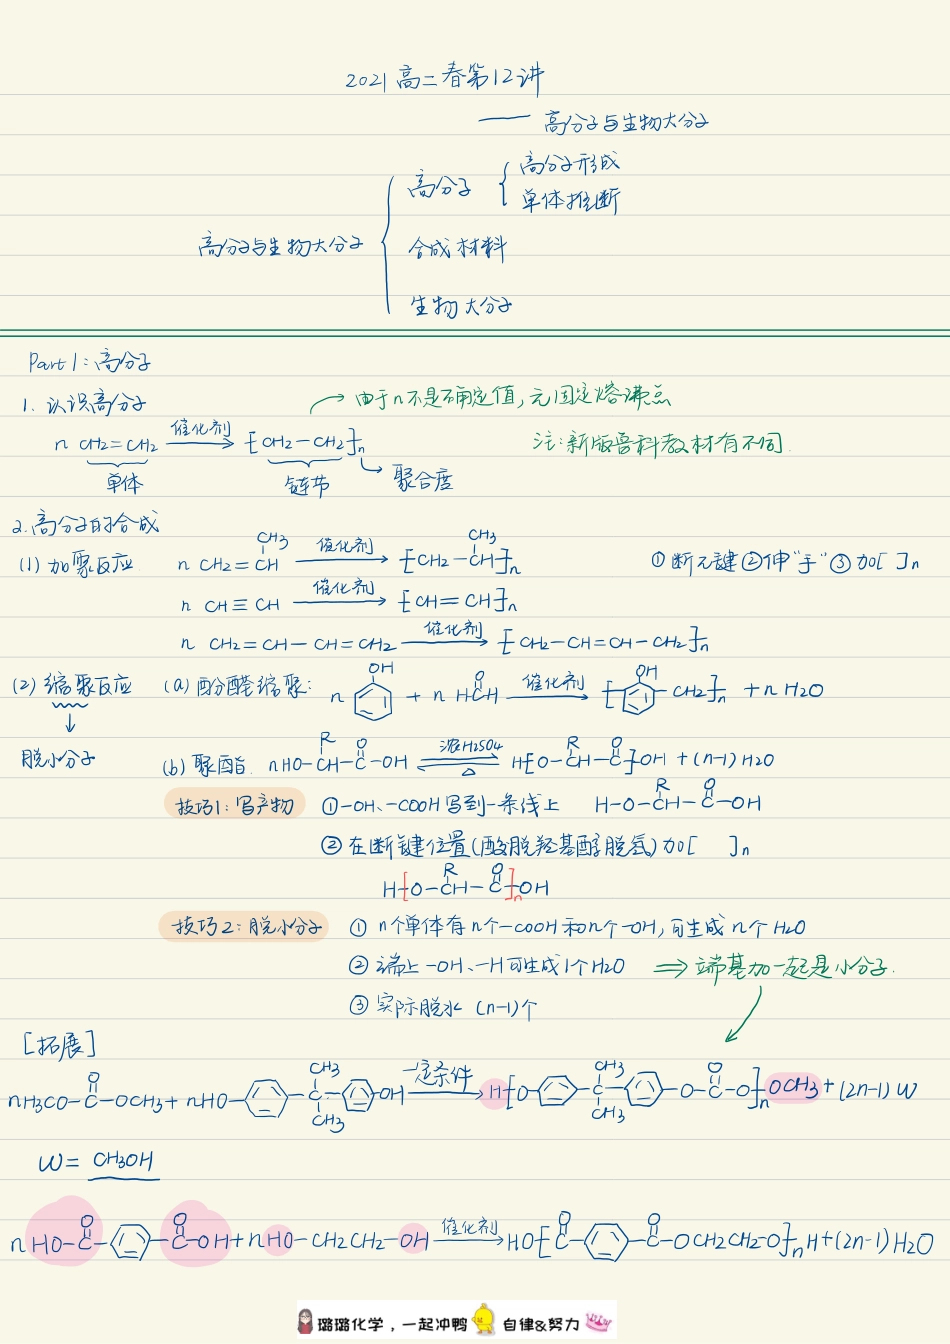 2021高二春第12讲
—— 高分子与生物大分子
高分子与生物大分子
高分子
高分子形成
单体推断
合成材料
生物大分子
Part 1: 高分子
1. 认识高分子
→ 由于n不是确定值,无固定熔沸点
n CH2=CH2 催化剂→ [CH2-CH2]n
注:新版鲁科教材有不同.
单体 链节 聚合度
2.高分子的合成
(1) 加聚反应 n CH2=CH(CH3) 催化剂→ [CH2-CH(CH3)]n ①断π键②伸“手”③加[ ]n
n CH≡CH 催化剂→ [CH=CH]n
n CH2=CH-CH=CH2 催化剂→ [CH2-CH=CH-CH2]n
(2) 缩聚反应 (a) 酚醛缩聚: n OH + n HCH(O) 催化剂→ [OH CH2]n + n H2O
↓
脱小分子
(b) 聚酯. nHO-CH(R)-C(O)-OH 浓H2SO4 △ H[O-CH(R)-C(O)]OH + (n-1) H2O
技巧1: 写产物 ①-OH、-COOH写到一条线上 H-O-CH(R)-C(O)-OH
②在断键位置(酸脱羟基醇脱氢)加[ ]n
H[O-CH(R)-C(O)]nOH
技巧2: 脱小分子 ① n个单体有n个-COOH和n个-OH,可生成n个H2O
② 端上-OH、-H可生成1个H2O ⇒ 端基加一起是小分子.
③ 实际脱水 (n-1)个
[拓展]
nH3CO-C(O)-OCH3 + nHO- -C(CH3)(CH3)- -OH 一定条件→ H[O- -C(CH3)(CH3)- -O-C(O)-O]nOCH3 + (2n-1) W
W= CH3OH
nHO-C(O)- -C(O)-OH + nHO-CH2CH2-OH 催化剂→ HO[C(O)- -C(O)-OCH2CH2-O]nH + (2n-1) H2O
璐璐化学,一起冲鸭 自律&努力